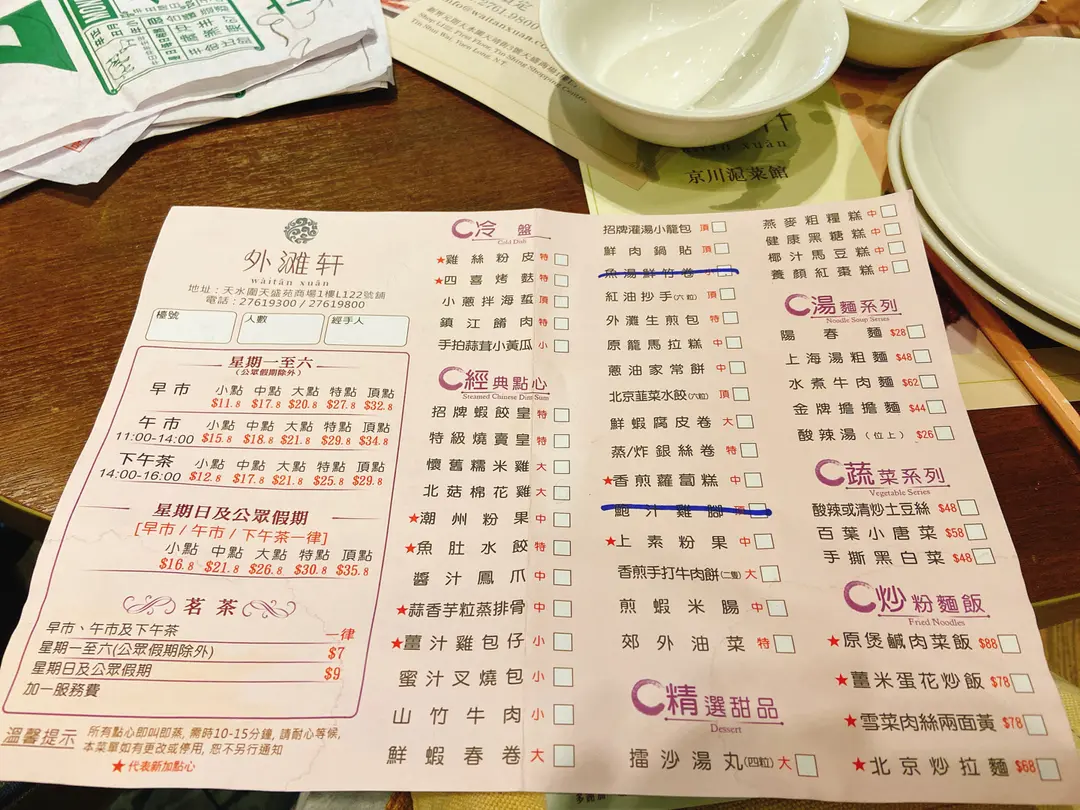 info@waitanxuan.co
2761 9800
Shop L122, First Floor, Tin Shing Shopping Centre,
Tin Shui Wai, Yuen Long, N.T.
waitan xuan
京川滬菜館
外滩轩
waitān xuān
地址：天水圍天盛苑商場1樓L122號鋪
電話：27619300 / 27619800
檯號 人數 經手人
星期一至六
(公眾假期除外)
早市 小點 中點 大點 特點 頂點
$11.8 $17.8 $20.8 $27.8 $32.8
午市 小點 中點 大點 特點 頂點
11:00-14:00 $15.8 $18.8 $21.8 $29.8 $34.8
下午茶 小點 中點 大點 特點 頂點
14:00-16:00 $12.8 $17.8 $21.8 $25.8 $29.8
星期日及公眾假期
[早市 / 午市 / 下午茶一律]
小點 中點 大點 特點 頂點
$16.8 $21.8 $26.8 $30.8 $35.8
茗茶
早市、午市及下午茶 一律
星期一至六(公眾假期除外) $7
星期日及公眾假期 $9
加一服務費
溫馨提示 所有點心即叫即蒸, 需時10-15分鐘, 請耐心等候,
本菜單如有更改或停用, 恕不另行通知
★代表新加點心
冷盤
Cold Dish
★雞絲粉皮 特
★四喜烤麩 特
小蔥拌海蜇 頂
鎮江餚肉 特
手拍蒜茸小黃瓜 小
經典點心
Steamed Chinese Dim Sum
招牌蝦餃皇 特
特級燒賣皇 特
懷舊糯米雞 大
北菇棉花雞 大
★潮州粉果 中
★魚肚水餃 特
醬汁鳳爪 中
★蒜香芋粒蒸排骨 中
★薑汁雞包仔 小
蜜汁叉燒包 小
山竹牛肉 小
鮮蝦春卷 大
招牌灌湯小籠包 頂
鮮肉鍋貼 頂
魚湯鮮竹卷 小
紅油抄手(六粒) 頂
外滩生煎包 特
原籠馬拉糕 中
蔥油家常餅 中
北京韮菜水餃(六粒) 頂
鮮蝦腐皮卷 大
蒸/炸銀絲卷 特
★香煎蘿蔔糕 中
鮑汁雞腳 頂
★上素粉果 中
香煎手打牛肉餅(二隻) 大
煎蝦米腸 中
郊外油菜 特
精選甜品
Dessert
擂沙湯丸(四粒) 大
燕麥粗糧糕 中
健康黑糖糕 中
椰汁馬豆糕 中
養顏紅棗糕 中
湯麵系列
Noodle Soup Series
陽春麵 $28
上海湯粗麵 $48
水煮牛肉麵 $62
金牌擔擔麵 $44
酸辣湯(位上) $26
蔬菜系列
Vegetable Series
酸辣或清炒土豆絲 $48
百葉小唐菜 $58
手撕黑白菜 $48
炒粉麵飯
Fried Noodles
★原煲鹹肉菜飯 $88
★薑米蛋花炒飯 $78
★雪菜肉絲兩面黃 $78
★北京炒拉麵 $68